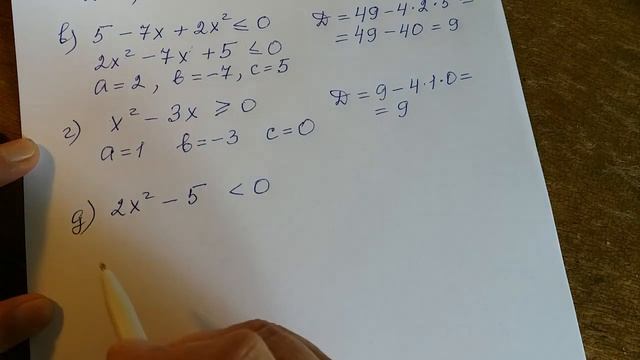 в) 5 − 7x + 2x² ≤ 0
2x² − 7x + 5 ≤ 0
a = 2, в = −7, c = 5
Д = 49 − 4 · 2 · 5 =
= 49 − 40 = 9
г) x² − 3x ≥ 0
a = 1 в = −3 c = 0
Д = 9 − 4 · 1 · 0 =
= 9
д) 2x² − 5 < 0